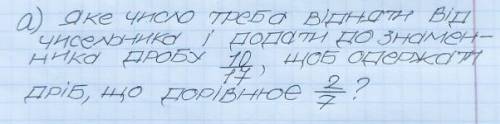 а) Яке число треба відняти від
чисельника і додати до знамен-
ника дробу 10/17, щоб одержати
дріб, що дорівнює 2/7?